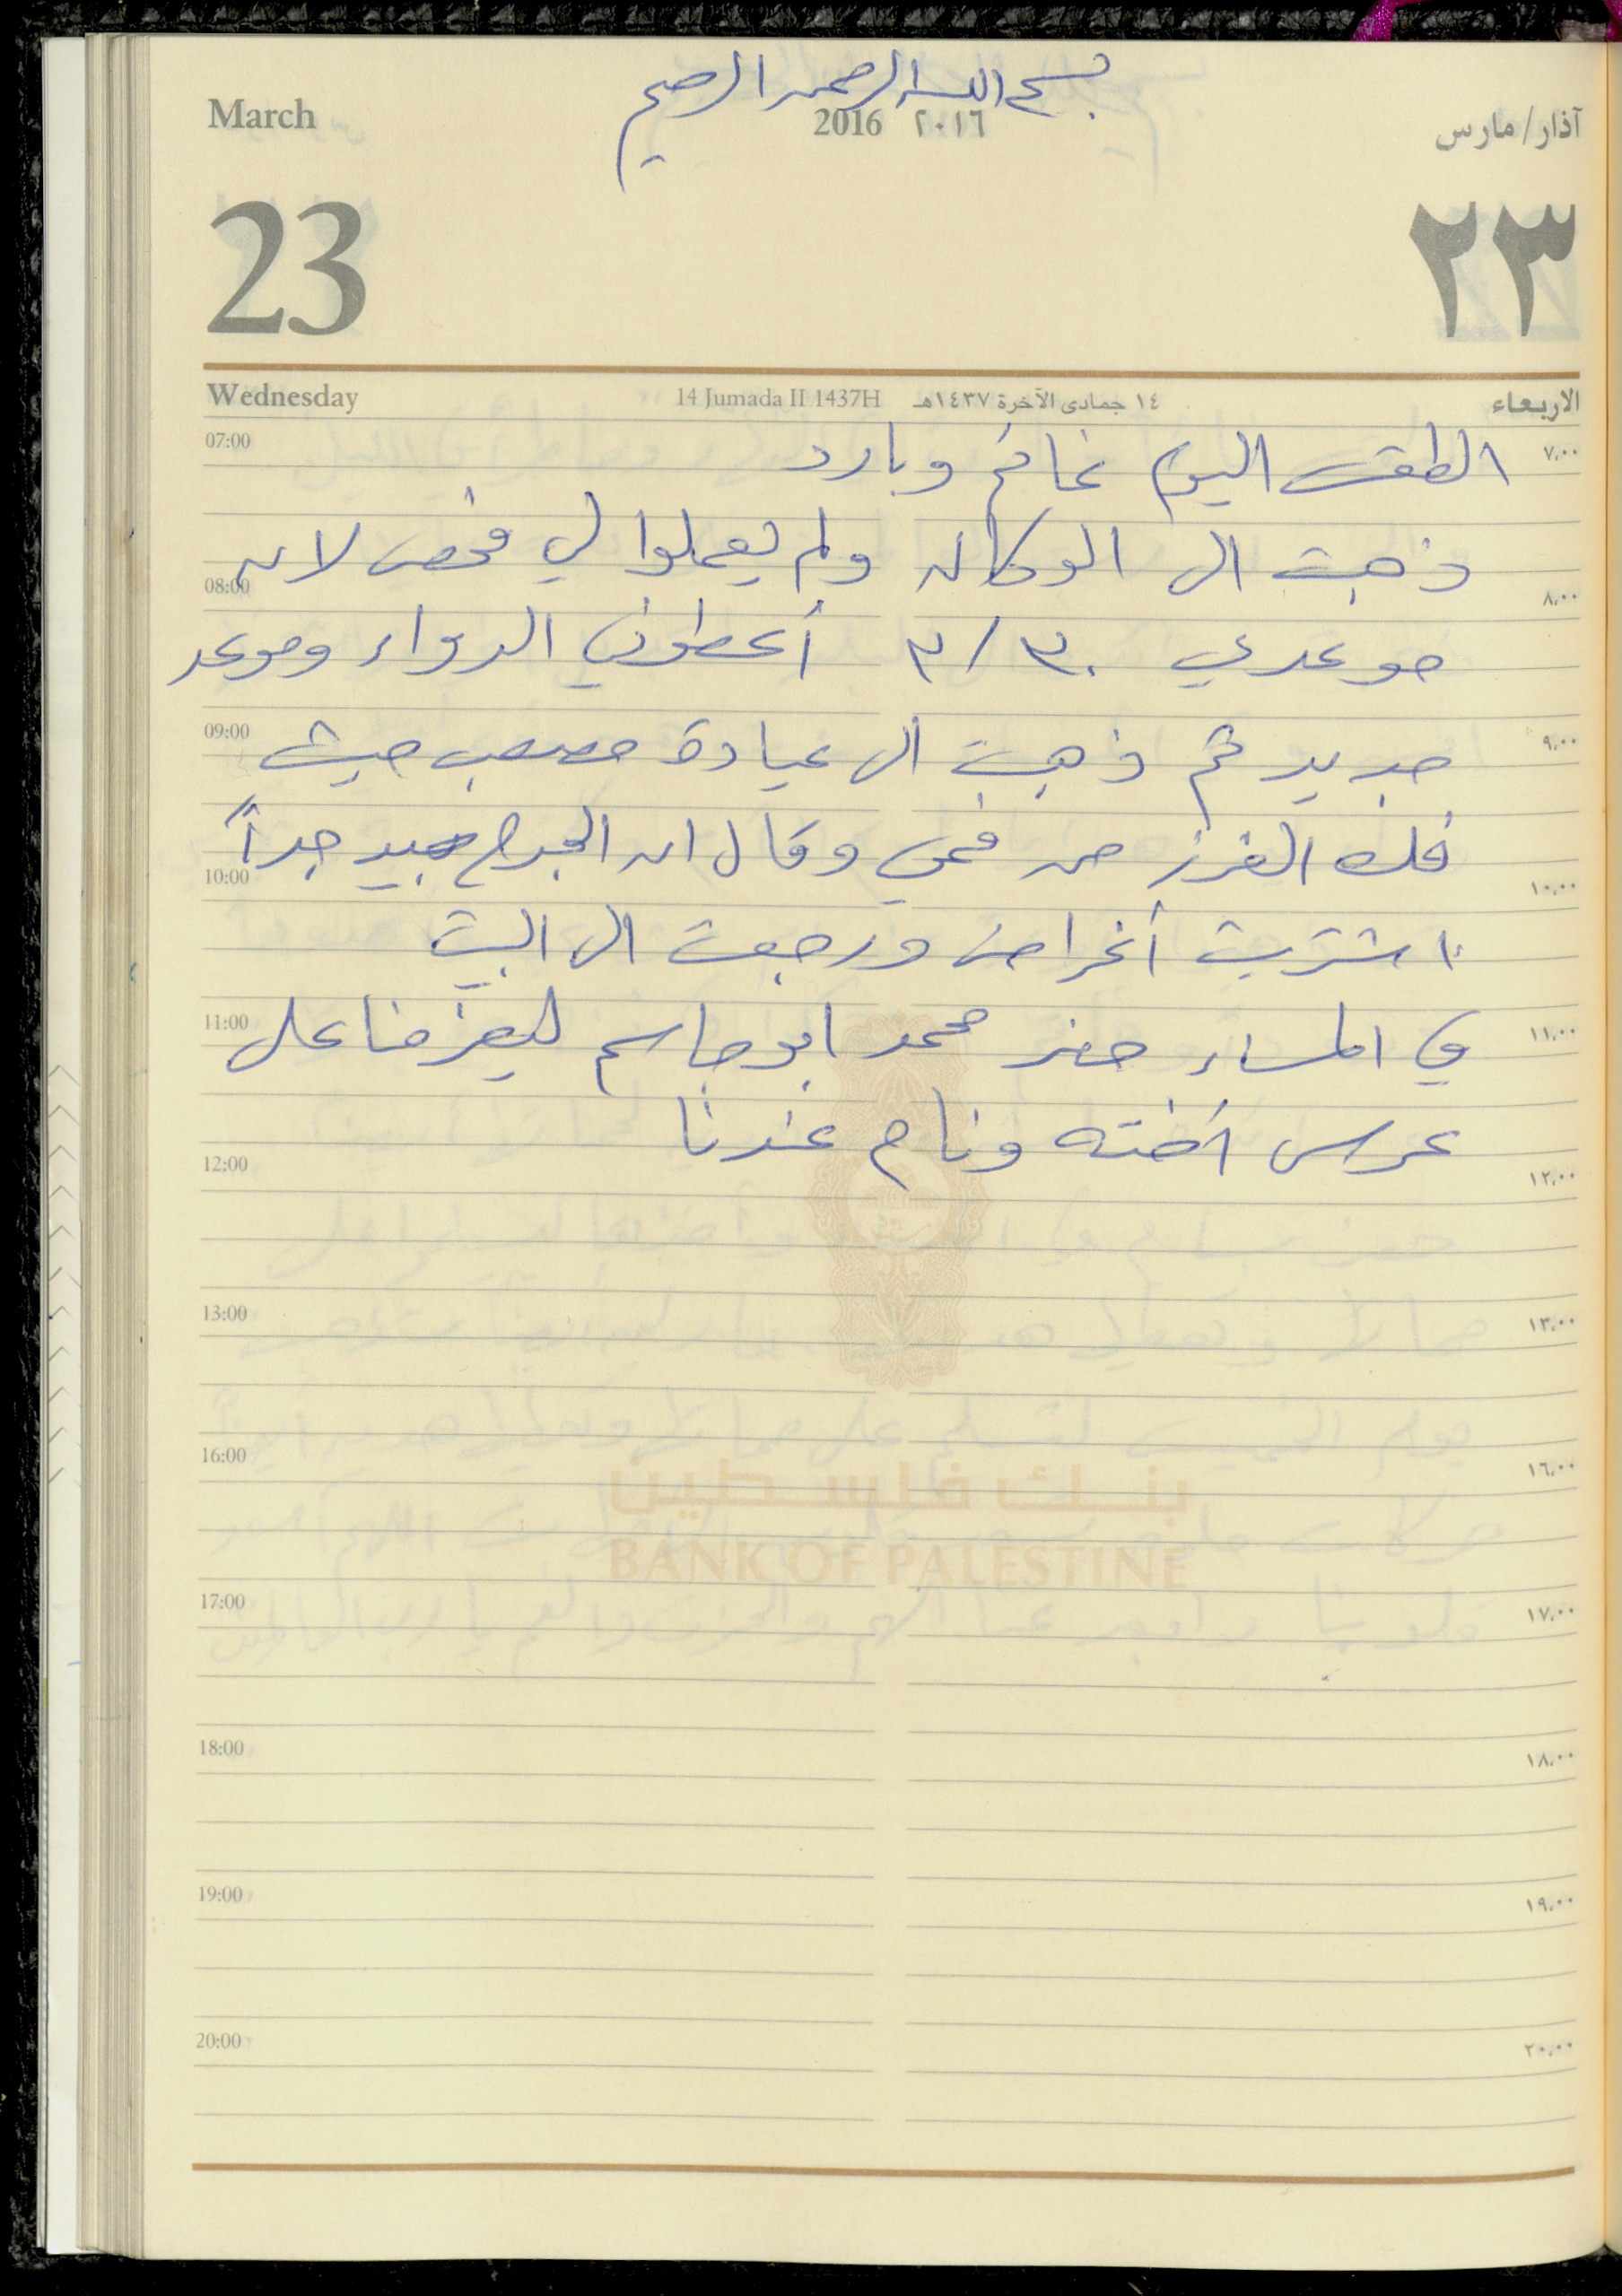 بسم الله الرحمن الرحيم
March 2016 ٢٠١٦ آذار/مارس
23 ٢٣
Wednesday 14 Jumada II 1437H ١٤ جمادى الآخرة ١٤٣٧هـ الاربعاء
07:00 الطقس اليوم غائم وبارد ٧،٠٠
ذهبت الى الوكالة ولم يعملوا لي فحص لان
08:00 ٨،٠٠
موعدي ٣٠/٣ أعطوني الدواء وموعد
09:00 جديد ثم ذهبت الى عيادة مصعب حيث ٩،٠٠
فك الغرز من فمي وقال ان الجرح جيد جداً
10:00 ١٠،٠٠
اشتريت أغراض ورجعت الى البيت
11:00 في المساء حضر محمد ابو جاسم ليعزمنا على ١١،٠٠
عرس اخته ونام عندنا
12:00 ١٢،٠٠
13:00 ١٣،٠٠
16:00 ١٦،٠٠
بنك فلسطين
BANK OF PALESTINE
17:00 ١٧،٠٠
18:00 ١٨،٠٠
19:00 ١٩،٠٠
20:00 ٢٠،٠٠